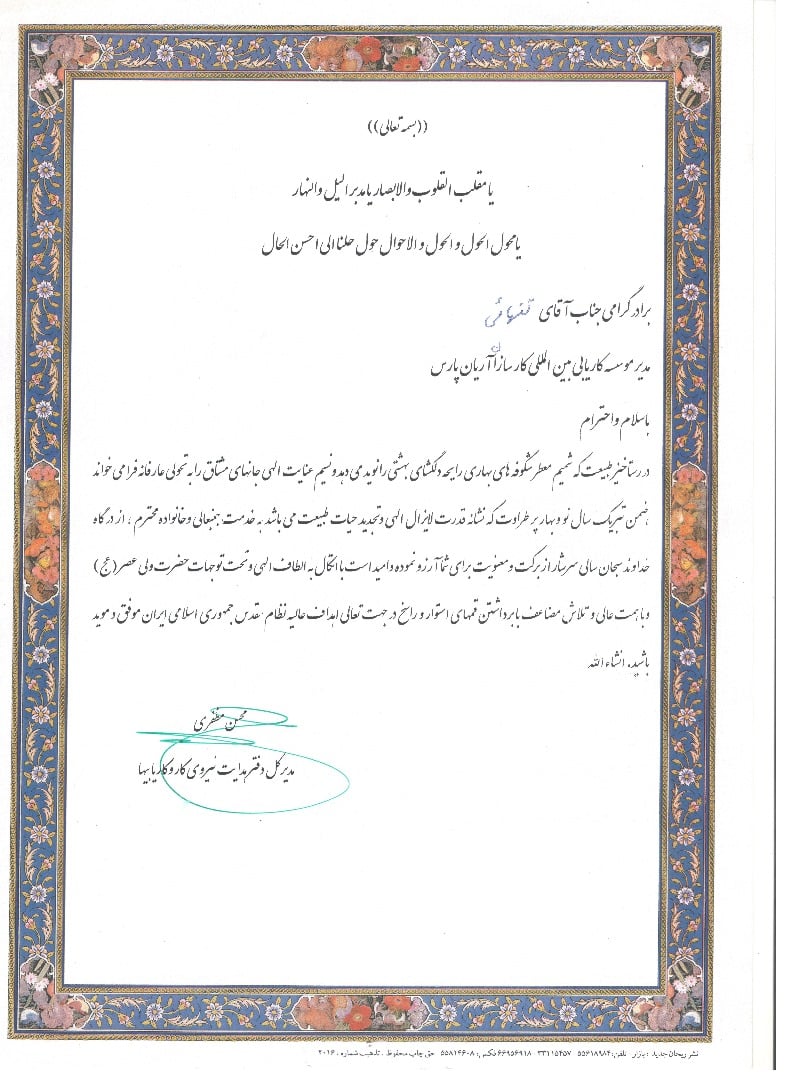 ((بسمه تعالی))
یا مقلب القلوب والابصار یا مدبر الیل والنهار
یا محول الحول و الحول و الاحوال حول حلنا الی احسن الحال
برادر گرامی جناب آقای تنهائی
مدیر موسسه کاریابی بین المللی کارسازان آریان پارس
باسلام واحترام
در رستاخیز طبیعت که شمیم معطر شکوفه های بهاری رایحه دلگشای بهشتی را نوید می دهد و نسیم عنایت الهی جانهای مشتاق را به تحولی عارفانه فرا می خواند
،ضمن تبریک سال نو و بهار پر طراوت که نشانه قدرت لایزال الهی و تجدید حیات طبیعت می باشد به خدمت جنبعالی و خانواده محترم ، از درگاه
خداوند سبحان سالی سرشار از برکت و معنویت برای شما آرزو نموده و امید است با اتکال به الطاف الهی و تحت توجهات حضرت ولی عصر (عج)
و با همت عالی و تلاش مضاعف با برداشتن قمهای استوار و راسخ در جهت تعالی اهداف عالیه نظام مقدس جمهوری اسلامی ایران موفق و موید
باشید. انشاء الله
محسن مظفری
مدیر کل دفتر هدایت نیروی کار و کاریابیها
نشر ریحان جدید : بازار تلفن: ۵۵۶۱۸۹۸۴ ۳۳۱۱۵۴۵۷ ۶۶۹۵۶۹۱۸ فکس : ۵۵۸۱۴۶۰۸ حق چاپ محفوظ . تذهیب شماره ۲۰۱۶